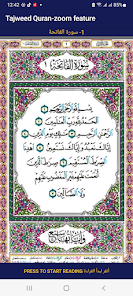 12:42
Tajweed Quran-zoom feature
1- سورة الفاتحة
سورة الفاتحة
بسم الله الرحمن الرحيم
الحمد لله رب العالمين
الرحمن الرحيم
مالك يوم الدين
إياك نعبد وإياك نستعين
اهدنا الصراط المستقيم
صراط الذين أنعمت عليهم
غير المغضوب عليهم
ولا الضالين
PRESS TO START READING انقر لبدأ القراءة